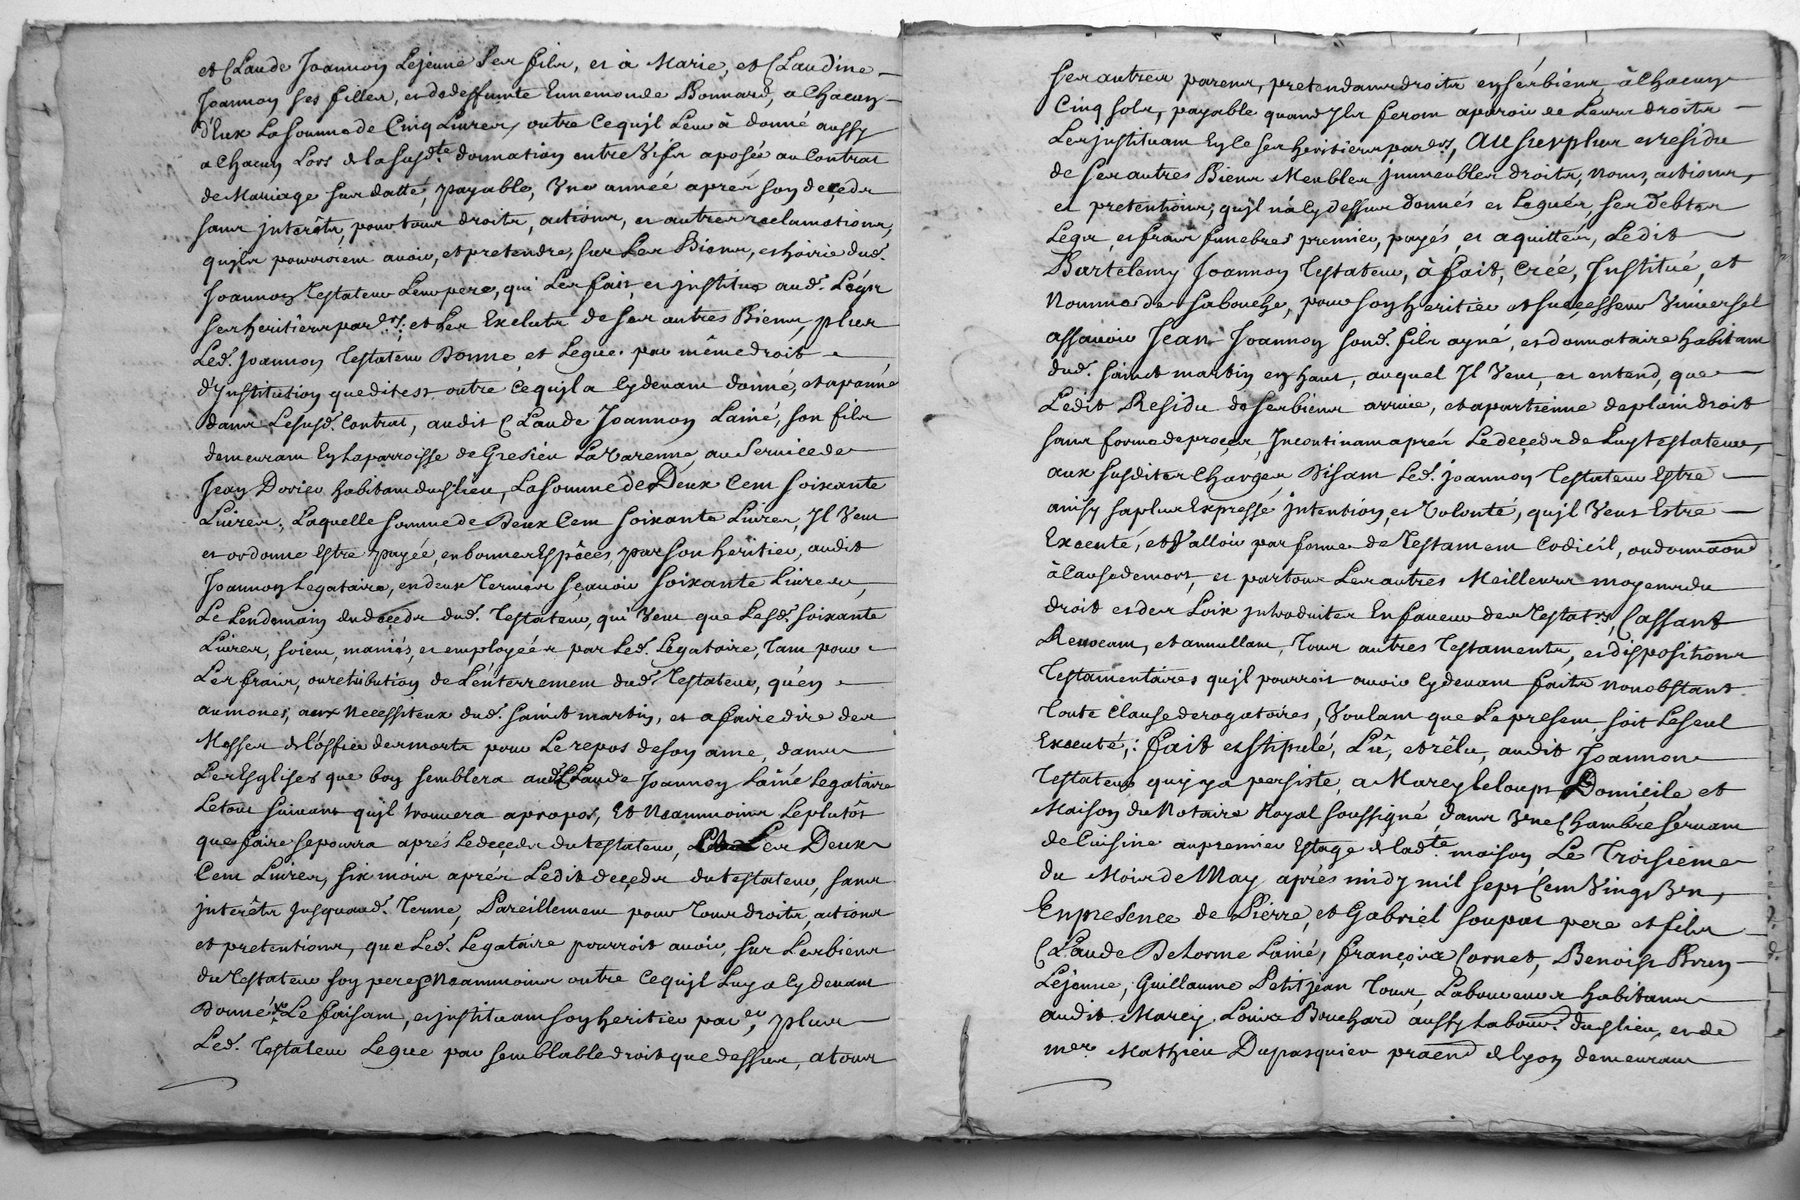 et Claude Joannon Lejeune ses fils, et à Marie, et Claudine
Joannon ses filles, et de deffunte Ennemonde Bonnard, a Chacun
d'Eux La somme de Cinq Livres, outre Cequ'jl Leur à donné aussy
a Chacun Lors de la susd.te donnation entre Vifs aposée au Contrat
de Mariage sus datté, payable, Une année aprés son deçeds
sans jnterêts, pour tous droits, actions, et autres reclamations,
qu'jls pourroient avoir, et pretendre, sur Les Biens, et hoirie dud.
Joannon Testateur Leur pere, qui Les fait, et jnstitue aud. Légs
ses heritiers par.ers, et Les Exclute de ses autres Biens, plus
Led. Joannon Testateur Donne, et Legue, par même droit
d'Jnstitution que dit est outre Cequ'jl a Cy devant donné, et aponné
dans Le susd. Contrat, audit Claude Joannon Lainé, son fils
demeurant En La parroisse de Gresieu La Varenne, au Service de
Jean Dorier habitant dud lieu, La somme de Deux Cent soixante
Livres, Laquelle somme de Deux Cent soixante Livres, Jl Veut
et ordonne Estre payée, en bonnes Espêces, par son heritier, audit
Joannon Legataire, en deux Termes sçavoir soixante Livres,
Le Lendemain du deçeds dud. Testateur, qui Veut que Lesd. soixante
Livres, soient, maniés, et employées par Led. Légataire, Tant pour
Les frais, ou retribution de L'enterrement dud. Testateur, qu'en
aumones, aux Necessiteux dud. Saint martin, et a faire dire des
Messes et L'office des morts pour Le repos de son ame, dans
Les Esglises que bon semblera aud Claude Joannon Lainé Legataire
Le tout suivant qu'jl trouvera apropos, Et Neanmoins Le plutôt
que faire se pourra aprés Le deçeds du testateur, Les Deux
Cent Livres, six mois aprés Ledit deçeds du testateur, sans
jnterêts jusquaud. Terme, Pareillement pour Tous droits, actions
et pretentions, que Led. Legataire pourroit avoir, sur Les biens
du Testateur son pere, Neanmoins outre Cequ'jl Luy a Cy devant
Donné, Le faisant, et jnstituant son heritier par.er, plus
Led. Testateur Legue par semblable droit que dessus, a tous
ses autres parens, pretendans droits en ses biens, à Chacun
Cinq sols, payable quand Jls feront aparoir de Leurs droits
Les jnstituant En Ce ses heritiers par.ers, Au surplus et residu
de ses autres Biens Meubles jmmeubles droits, Noms, actions,
et pretentions, qu'jl n'a Cy dessus donnés et Legués, ses debtes
Legs, et frais funebres premier, payés, et aquittés, Ledit
Bartelemy Joannon Testateur, à fait, Créé, Jnstitué, et
Nommé de sa bouche, pour son heritier et successeur Universel
assavoir Jean Joannon sond. fils ayné, et donnataire habitant
dud. saint martin en haut, auquel Jl Veut, et entend, que
Ledit Residu de ses biens arrive, et apartienne de plain droit
sans forme de proçes, Jncontinant aprés Le deçeds de Luy testateur,
aux susdites Charges, Disant Led. Joannon Testateur Estre
ainsy sa plus Expresse jntention, et Volonté, qu'jl Veut Estre
Executé, et Valloir par forme de Testament Codicil, ou donnaon
à Cause de mort, et par tous Les autres Meilleurs moyens du
droit et des Loix jntroduites En faveur des Testat.rs, Cassant
Revocant, et annullant, Tous autres Testaments, et dispositions
Testamentaires qu'jl pourroit avoir Cy devant faits nonobstant
Toute Clause derogatoires, Voulant que Le present soit Le seul
Executé, : fait et stipulé, Lû, et rêlu, audit Joannon
Testateur qui y a persisté, a Marcy le loups Domicile et
Maison du Notaire Royal soussigné, dans Une Chambre servant
de Cuisine au premier Estage de lad.te maison Le Troisième
du Mois de May aprés midy mil sept Cent Vingt Un,
En presence de Pierre, et Gabriel soupat pere et fils
Claude Delorme Lainé, françois Cornet, Benoist Brun
Léjeune, Guillaume Petitjean Tous, Laboureurs habitans
audit Marcy. Louis Bouchard aussy Labour. dud lieu, et de
mer. Mathieu Dupasquier praend a Lyon demeurant